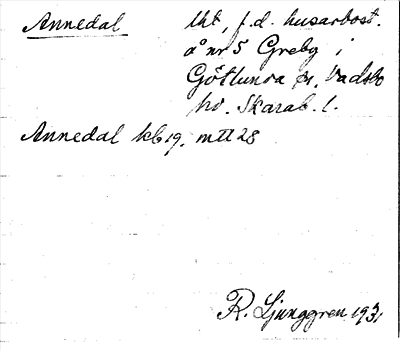 Annedal lht, f.d. husarbost.
å nr 5 Greby i
Götlunda sn, Vadsbo
hd. Skarab. l.
Annedal kb 19. mtl 28
R. Ljunggren 1931